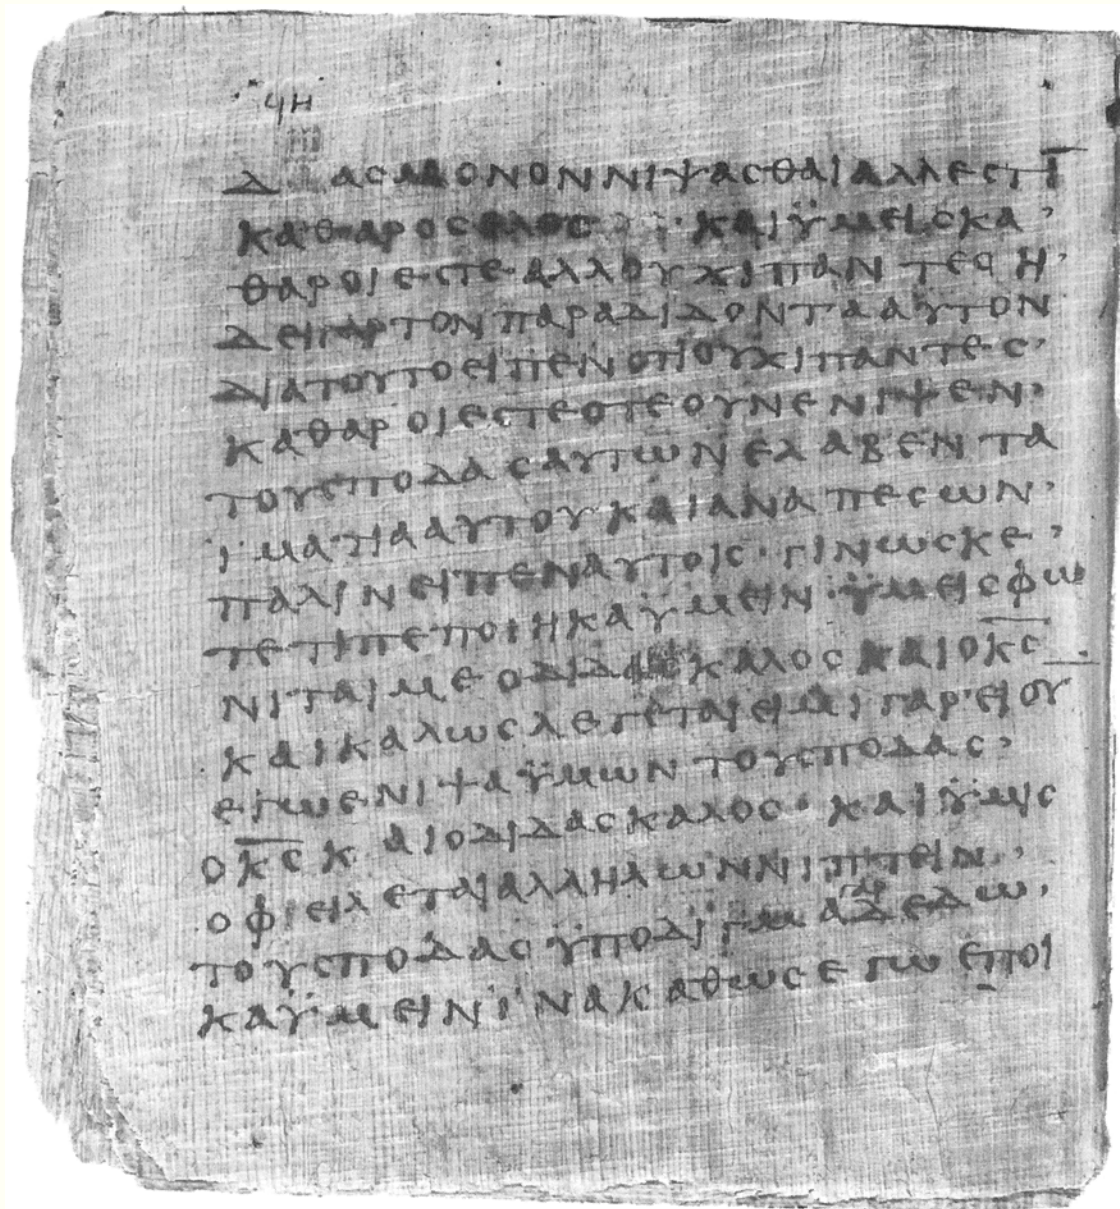 ϥΗ
ΔΑС ΜΟΝΟΝ ΝΙΨΑСΘΑΙ ΑΛΛ ΕСΤΙ̅
ΚΑΘΑΡΟС ΟΛΟС · ΚΑΙ ΫΜΕΙС ΚΑ’
ΘΑΡΟΙ ΕСΤΕ ΑΛΛ ΟΥΧΙ ΠΑΝΤΕС Η’
ΔΕΙ ΓΑΡ ΤΟΝ ΠΑΡΑΔΙΔΟΝΤΑ ΑΥΤΟΝ
ΔΙΑ ΤΟΥΤΟ ΕΙΠΕΝ ΟΤΙ ΟΥΧΙ ΠΑΝΤΕС’
ΚΑΘΑΡΟΙ ΕСΤΕ ΟΤΕ ΟΥΝ ΕΝΙΨΕΝ’
ΤΟΥС ΠΟΔΑС ΑΥΤΩΝ ΕΛΑΒΕΝ ΤΑ
ΪΜΑΤΙΑ ΑΥΤΟΥ ΚΑΙ ΑΝΑΠΕСΩΝ’
ΠΑΛΙΝ ΕΙΠΕΝ ΑΥΤΟΙС · ΓΙΝΩСΚΕ’
ΤΕ ΤΙ ΠΕΠΟΙΗΚΑ ΫΜΕΙΝ · ΫΜΕΙС ΦΩ
ΝΙΤΑΙ ΜΕ Ο ΔΙΔΑСΚΑΛΟС ΚΑΙ Ο Κ̅С̅
ΚΑΙ ΚΑΛΩС ΛΕΓΕΤΑΙ ΕΙΜΙ ΓΑΡ’ ΕΙ ΟΥ
ΕΓΩ ΕΝΙΨΑ ΫΜΩΝ ΤΟΥС ΠΟΔΑС’
Ο Κ̅С̅ ΚΑΙ Ο ΔΙΔΑСΚΑΛΟС · ΚΑΙ ΫΜΙС
ΟΦΙΕΙΛΕΤΑΙ ΑΛΛΗΛΩΝ ΝΙΠΤΕΙΝ’
ΤΟΥС ΠΟΔΑС ΫΠΟΔΙΓΜΑ ΓΑΡ ΔΕΔΩ’
ΚΑ ΫΜΕΙΝ ΪΝΑ ΚΑΘΩС ΕΓΩ ΕΠΟΙ